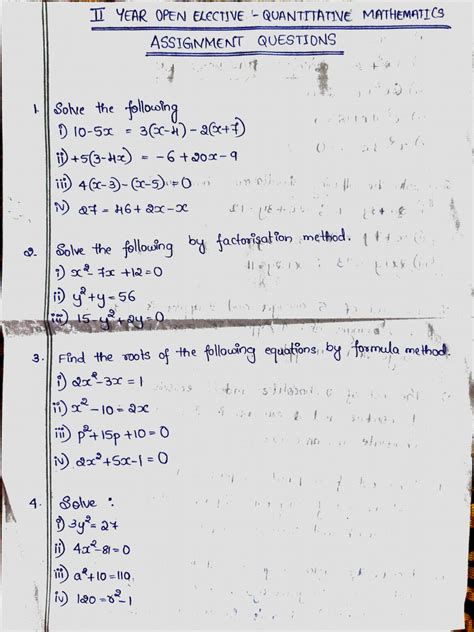 II YEAR OPEN ELECTIVE - QUANTITATIVE MATHEMATICS
ASSIGNMENT QUESTIONS
1. Solve the following
i) 10-5x = 3(x-4) - 2(x+7)
ii) +5(3-4x) = -6+20x-9
iii) 4(x-3)-(x-5)=0
iv) 27 = 46+2x-x
2. Solve the following by factorisation method.
i) x²-7x+12=0
ii) y²+y=56
iii) 15-y²+2y=0
3. Find the roots of the following equations by formula method.
i) 2x²-3x=1
ii) x²-10=2x
iii) p²+15p+10=0
iv) 2x²+5x-1=0
4. Solve :
i) 3y²=27
ii) 4x²-81=0
iii) a²+10=110
iv) 120=r²-1